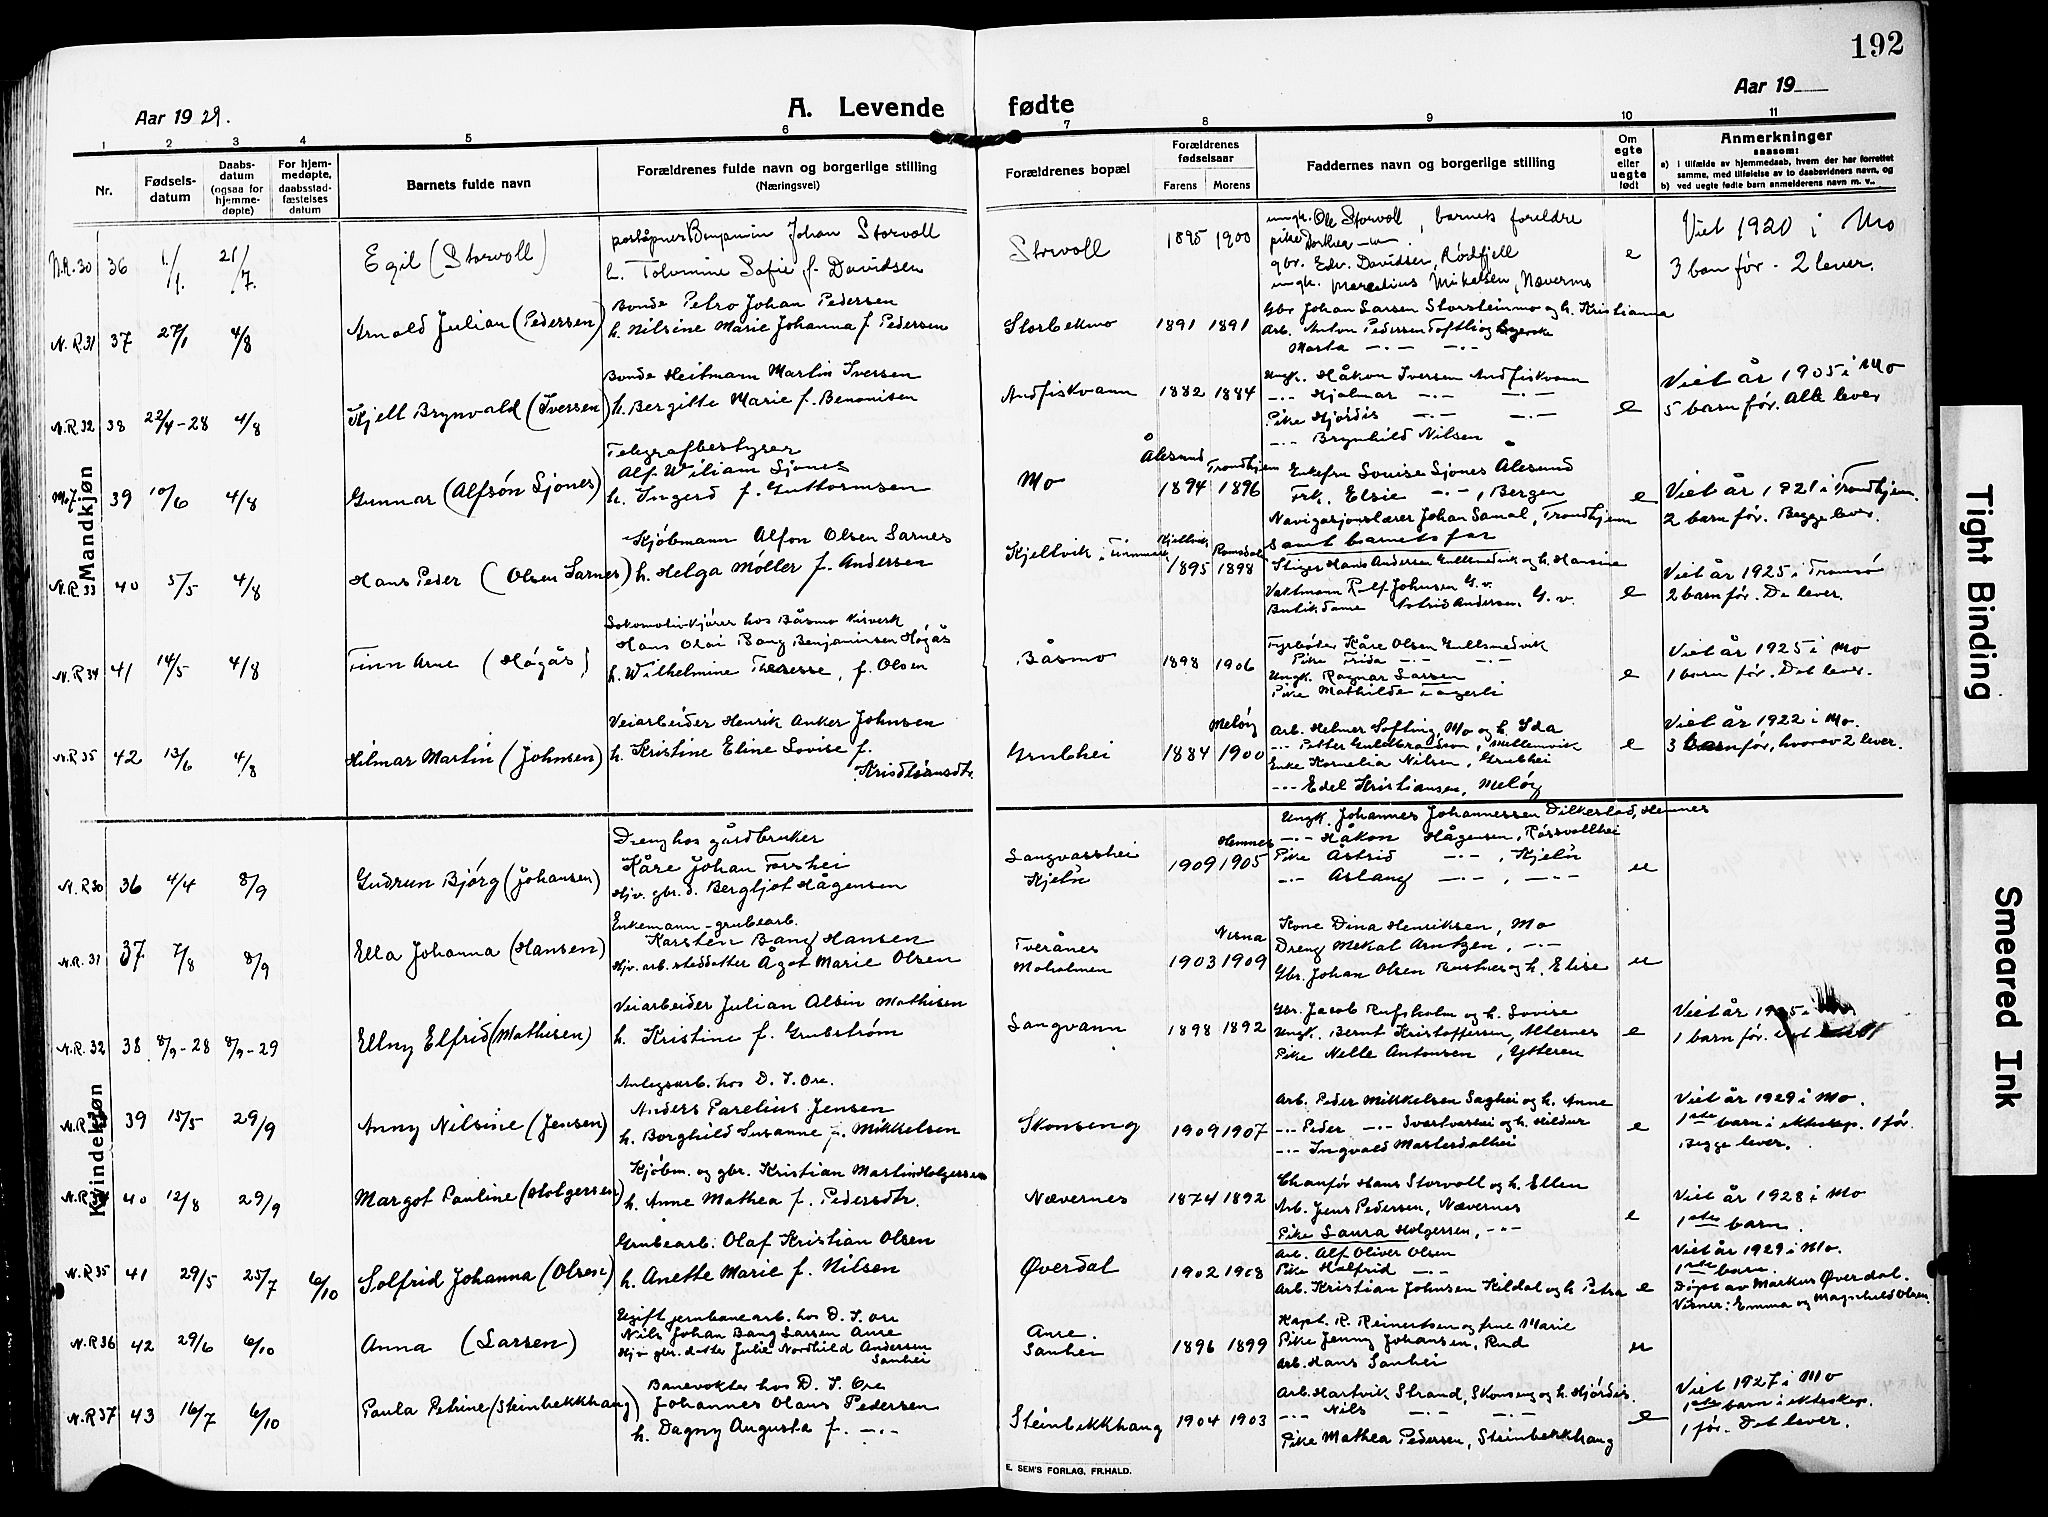 192
Aar 1929.
A. Levende fødte
Aar 19
1 2 3 4 5 6 7 8 9 10 11
Nr.
Fødsels-
datum
Daabs-
datum
(ogsaa for
hjemme-
døpte)
For hjem-
medøpte,
daabsstad-
fæstelses
datum
Barnets fulde navn
Forældrenes fulde navn og borgerlige stilling
(Næringsvei)
Forældrenes bopæl
Forældrenes
fødselsaar
Farens Morens
Faddernes navn og borgerlige stilling
Om
egte
eller
uegte
født
Anmerkninger
saasom:
a) i tilfælde av hjemmedaab, hvem der har forrettet
samme, med tilføielse av to daabsvidners navn, og
b) ved uegte fødte barn anmelderens navn m. v..
Mandkjøn
N.R.30 36 1/1. 21/7. Egil (Storvoll)
poståpner Benjamin Johan Storvoll
h. Tolvmine Sofie f. Davidsen
Storvoll 1895 1900
ungk. Ole Storvoll, barnets foreldre
pike Dorthea
gbr. Edv. Davidsen, Rødfjell
ungk. Marcelius Mikalsen, Nævernes
e
Viet 1920 i Mo
3 barn før. 2 lever.
N.R.31 37 27/1 4/8 Arnold Julian (Pedersen)
Bonde Petro Johan Pedersen
h. Nilsine Marie Johanna f. Pedersen
Storbekmo 1891 1891
Gbr Johan Larsen Storsteinmo og h. Kristianna
Arb. Anton Pedersen Toftli og
Marta —·— —·—
N.R.32 38 22/4-28 4/8 Kjell Brynvald (Iversen)
Bonde Heitmann Martin Iversen
h. Bergitte Marie f. Benonisen
Andfiskvann 1882 1884
Ungk. Håkon Iversen Andfiskvann
—·— Hjalmar —·— —·—
Pike Hjørdis —·— —·—
—·— Brynhild Nilsen
e
Viet år 1905 i Mo
5 barn før. Alle lever
39 10/6 4/8 Gunnar (Alfsøn Sjones)
Telegrafbestyrer
Alf William Sjones
h. Ingerd f. Guttormsen
Mo
Ålesund Trondhjem
1894 1896
Enkefru Louise Sjones Ålesund
Frk. Elsie —·—, Bergen
Navigasjonslærer Johan Samal, Trondhjem
samt barnets far
e
Viet år 1921 i Trondhjem.
2 barn før. Begge lever.
N.R.33 40 5/5 4/8 Hans Peder (Olsen Sarnes)
Kjøbmann Alfon Olsen Sarnes
h. Helga Møller f. Andersen
Kjellvik, Finnmark
Kjellvik Romsdal
1895 1898
Stiger Hans Andersen Gullsmedvik og h. Hansine
Vaktmann Rolf Johnsen G.v.
Butikdame Astrid Andersen. G.v.
e
Viet år 1925 i Tromsø
2 barn før. De lever.
N.R.34 41 14/5 4/8 Finn Arne (Høgås)
Lokomotivkjører hos Båsmo Kisverk
Hans Olai Bang Benjaminsen Høgås
h. Wilhelmine Theresse, f. Olsen
Båsmo 1898 1906
Fyrbøter Kåre Olsen Gullsmedvik
Pike Frida —·— —·—
Ungk. Ragnar Larsen
Pike Mathilde Fagerli
e
Viet år 1925 i Mo
1 barn før. Det lever.
N.R.35 42 13/6 4/8 Hilmar Martin (Johnsen)
Veiarbeider Henrik Anker Johnsen
h. Kristine Eline Lovise f.
Kristiansdtr.
Grubhei
Meløy
1884 1900
Arb. Helmer Softing, Mo og h. Ida
—·— Petter Guldbrandsen, Mellemvik
Enke Kornelia Nilsen, Grubhei
—·— Edel Kristiansen, Meløy
e
Viet år 1922 i Mo.
3 barn før, hvorav 2 lever.
Kvindekjøn
N.R.30 36 4/4 8/9 Gudrun Bjørg (Johansen)
Dreng hos gårdbruker
Kåre Johan Forshei
Hjv. gbr. d. Bergljot Hågensen
Langvasshei
Kjeln
Hemnes
1909 1905
Ungk. Johannes Johannessen Dilkestad, Hemnes
—·— Håkon Hågensen, Røssvollhei
Pike Astrid —·—, Kjeln
—·— Aslaug —·—, —·—
u
N.R.31 37 7/8 8/9 Ella Johanna (Hansen)
Enkemann - grubearb.
Karsten Bang Hansen
Hjv. arb. steddatter Ågot Marie Olsen
Tverånes
Moholmen
Nesna
1903 1909
Kone Dina Henriksen, Mo
Dreng Mekal Arntzen, —·—
Gbr. Johan Olsen Bustnes og h. Elise
u
N.R.32 38 8/9-28 8/9-29 Ellny Elfrid (Mathisen)
Veiarbeider Julian Albin Mathisen
h. Kristine f. Grubstrøm
Langvann 1898 1892
Gbr. Jacob Rufsholm og h. Lovise
Ungk. Bernt Kristoffersen, Alternes
Pike Nelle Antonsen, Ytteren
e
Viet år 1925 i
1 barn før.
39 15/5 29/9 Anny Nilsine (Jensen)
Anlegsarb. hos D. S. Ore.
Anders Parelius Jensen
h. Borghild Susanne f. Mikkelsen
Skonseng 1909 1907
Arb. Peder Mikkelsen Saghei og h. Anne
—·— Peder —·— Svartvashei og h. Hildur
—·— Ingvald Mastersdalhei
e
Viet år 1929 i Mo.
1ste barn i ekteskap. 1 før.
Begge lever.
N.R.34 40 12/8 29/9 Margot Pauline (Holgersen)
Kjøbm. og gbr. Kristian Martin Holgersen
h. Anne Mathea f. Pedersdtr.
Nævernes 1874 1892
Chauffør Hans Storvoll og h. Ellen
Arb. Jens Pedersen, Nævernes
Pike Laura Holgersen, —·—
e
Viet år 1928 i Mo
1ste barn.
N.R35 41 29/5 25/7 6/10 Solfrid Johanna (Olsen)
Grubearb. Olaf Kristian Olsen
h. Anette Marie f. Nilsen
Øverdal 1902 1908
Arb. Alf Oliver Olsen
Pike Halfrid —·—
Arb. Kristian Johnsen Kildal og h. Petra
e
Viet år 1929 i Mo.
1ste barn.
Døpt av Markus Øverdal.
Vidner: Emma og Magnhild Olsen.
N.R36 42 29/6 6/10 Anna (Larsen)
Ugift jernbanearb. hos D. S. ore
Nils Johan Bang Larsen Aure
Hjv gbr. datter Julie Nordhild Andersen
Sanhei
Aure.
Sanhei
1896 1899
Kapt. R. Reinertsen og frue Marie
Pike Jenny Johansen, Rud
Arb. Hans Sanhei
u
N.R37 43 16/7 6/10 Paula Petrine (Steinbekkhaug)
Banevokter hos D. S. Ore
Johannes Olaus Pedersen
h. Dagny Augusta f. —·—
Steinbekkhaug 1904 1903
Arb. Hartvik Strand, Skonseng og h. Hjørdis.
—·— Nils —·— —·—
Pike Mathea Pedersen, Steinbekkhaug
e
Viet 1927 i Mo
1ste barn i ekteskap.
1 før. Det lever.
E. SEM'S FORLAG, FR.HALD.
Tight Binding
Smeared Ink